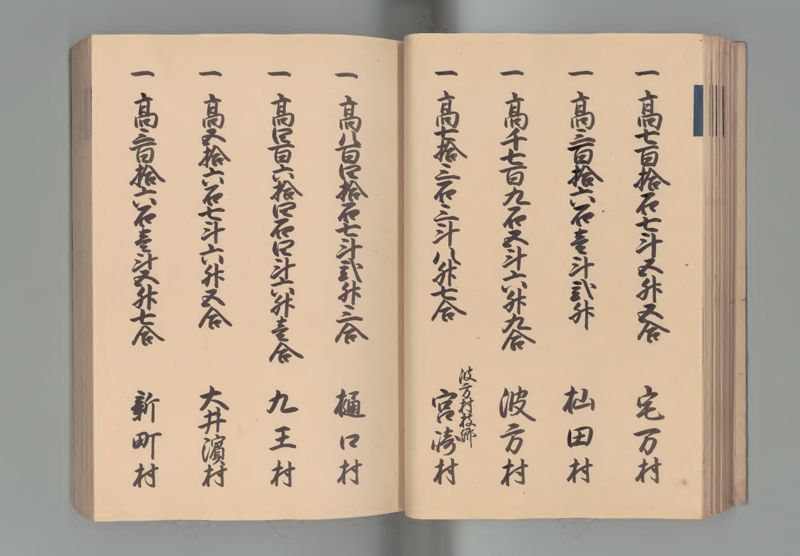 一 高七百拾石七斗五升五合 宅万村
一 高三百拾六石壱斗弐升 杣田村
一 高千七百九石五斗六升九合 波方村
一 高七拾三石三斗八升七合 波方村枝郷 宮崎村
一 高八百四拾石七斗弐升三合 樋口村
一 高四百六拾四石四斗六升壱合 九王村
一 高五拾六石七斗六升五合 大井濱村
一 高三百拾六石壱斗五升七合 新町村